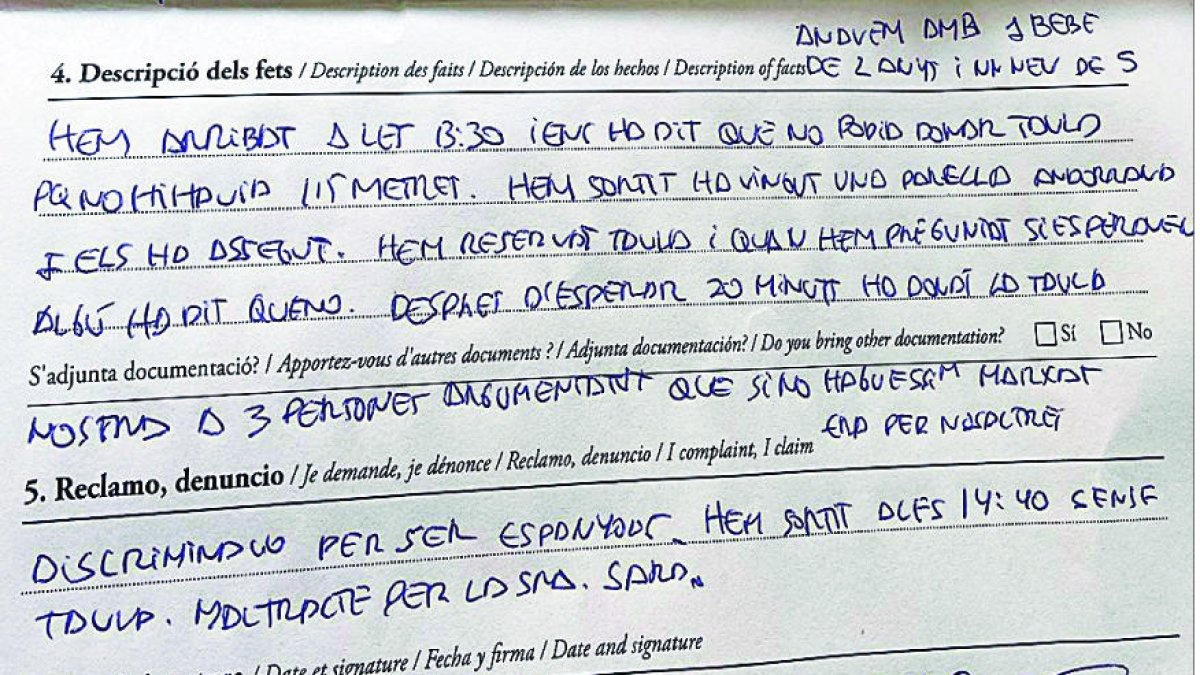 ANAVEM AMB 1 BEBE
4. Descripció dels fets / Description des faits / Descripción de los hechos / Description of facts DE 2 ANYS i UN NEU DE 5
HEM ARRIBAT A LES 13:30 i ENS HA DIT QUE NO PODIA DONAR TAULA
PQ NO HI HAVIA 115 METRES. HEM SORTIT HA VINGUT UNA PARELLA ANDORRANA
I ELS HA ASSEGUT. HEM RESERVAT TAULA i QUAN HEM PREGUNTAT SI ESPERAVEU
ALGÚ HA DIT QUE NO. DESPRES D'ESPERAR 20 MINUTS HA DONAT LA TAULA
S'adjunta documentació? / Apportez-vous d'autres documents ? / Adjunta documentación? / Do you bring other documentation? Sí No
NOSTRA A 3 PERSONES ARGUMENTANT QUE SI NO HAGUESSIM MARXAT
ERA PER NOSALTRES
5. Reclamo, denuncio / Je demande, je dénonce / Reclamo, denuncio / I complaint, I claim
DISCRIMINACIÓ PER SER ESPANYOLS. HEM SORTIT A LES 14:40 SENSE
TAULA. MALTRACTE PER LA SRA. SARA.
/ Date et signature / Fecha y firma / Date and signature